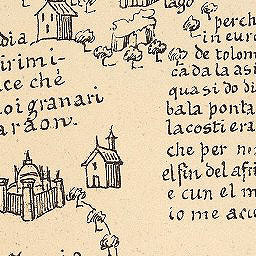 dia
irimi-
ce chè
oi granari
araon.
lago
perch
in euro
de tolom
ca da la asi
quasi do di
bala ponta
la costi era
che per non
el fin del afri
e cun el m
io me acc